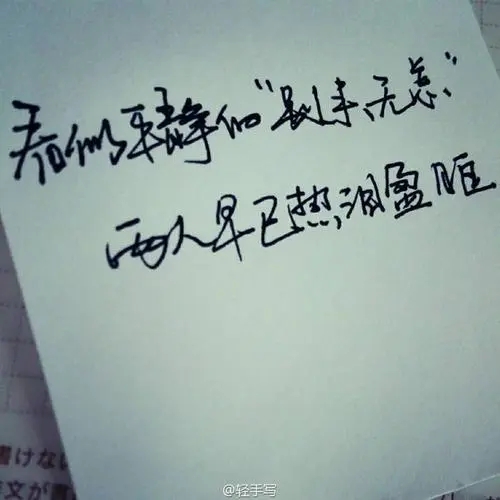 看似平静的“别来无恙”
两人早已热泪盈眶
書けない
文が書
@轻手写